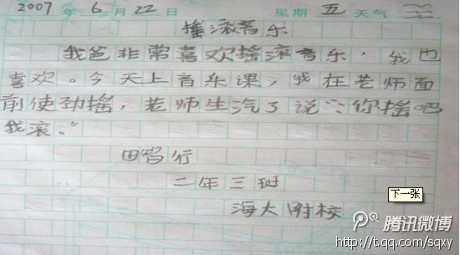 2007 年 6 月 22 日 星期 五 天气
摇滚音乐
我爸非常喜欢摇滚音乐，我也
喜欢。今天上音乐课，我在老师面
前使劲摇，老师生汽了说："你摇吧
我滚。"
田鸣行
二年三班
海大附校
下一张
腾讯微博
http://t.qq.com/sqxy